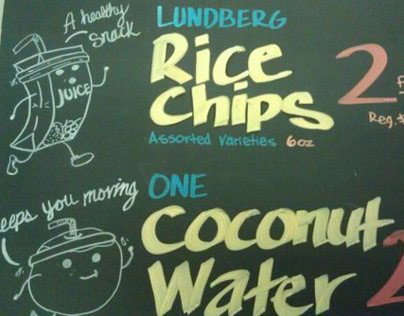 A healthy
snack
JUICE
LUNDBERG
Rice
Chips
2
Reg.
Assorted Varieties 6oz
keeps you moving
ONE
Coconut
Water
2